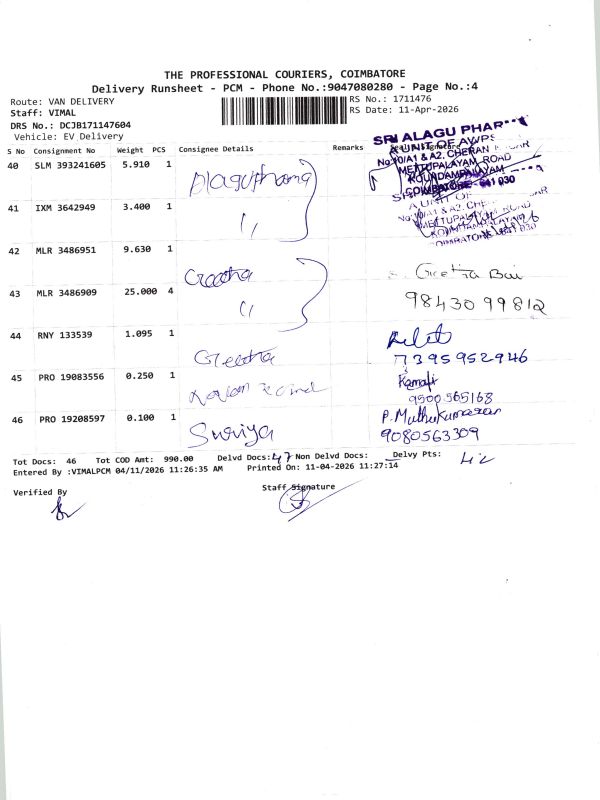 THE PROFESSIONAL COURIERS, COIMBATORE
Delivery Runsheet - PCM - Phone No.:9047080280 - Page No.:4
Route: VAN DELIVERY
RS No.: 1711476
Staff: VIMAL
RS Date: 11-Apr-2026
DRS No.: DCJB171147604
Vehicle: EV Delivery
S No Consignment No Weight PCS Consignee Details Remarks
SRI ALAGU PHAR
A UNIT OF
No.10/A1 & A2, CHERAN NAGAR
METTUPALAYAM ROAD
KOUNDAMPALAYAM
COIMBATORE - 641 030
40 SLM 393241605 5.910 1
A UNIT OF
METTUPALAYAM ROAD
41 IXM 3642949 3.400 1 "
42 MLR 3486951 9.630 1 Geetha Geetha Bai
43 MLR 3486909 25.000 4 " 98430 99812
44 RNY 133539 1.095 1 Geetha 7395952946
45 PRO 19083556 0.250 1 Kamali
9500565168
46 PRO 19208597 0.100 1 Suriya P. Muthukumaran
9080563309
Tot Docs: 46 Tot COD Amt: 990.00 Delvd Docs: 47 Non Delvd Docs: Delvy Pts: 42
Entered By :VIMALPCM 04/11/2026 11:26:35 AM Printed On: 11-04-2026 11:27:14
Verified By
Staff Signature